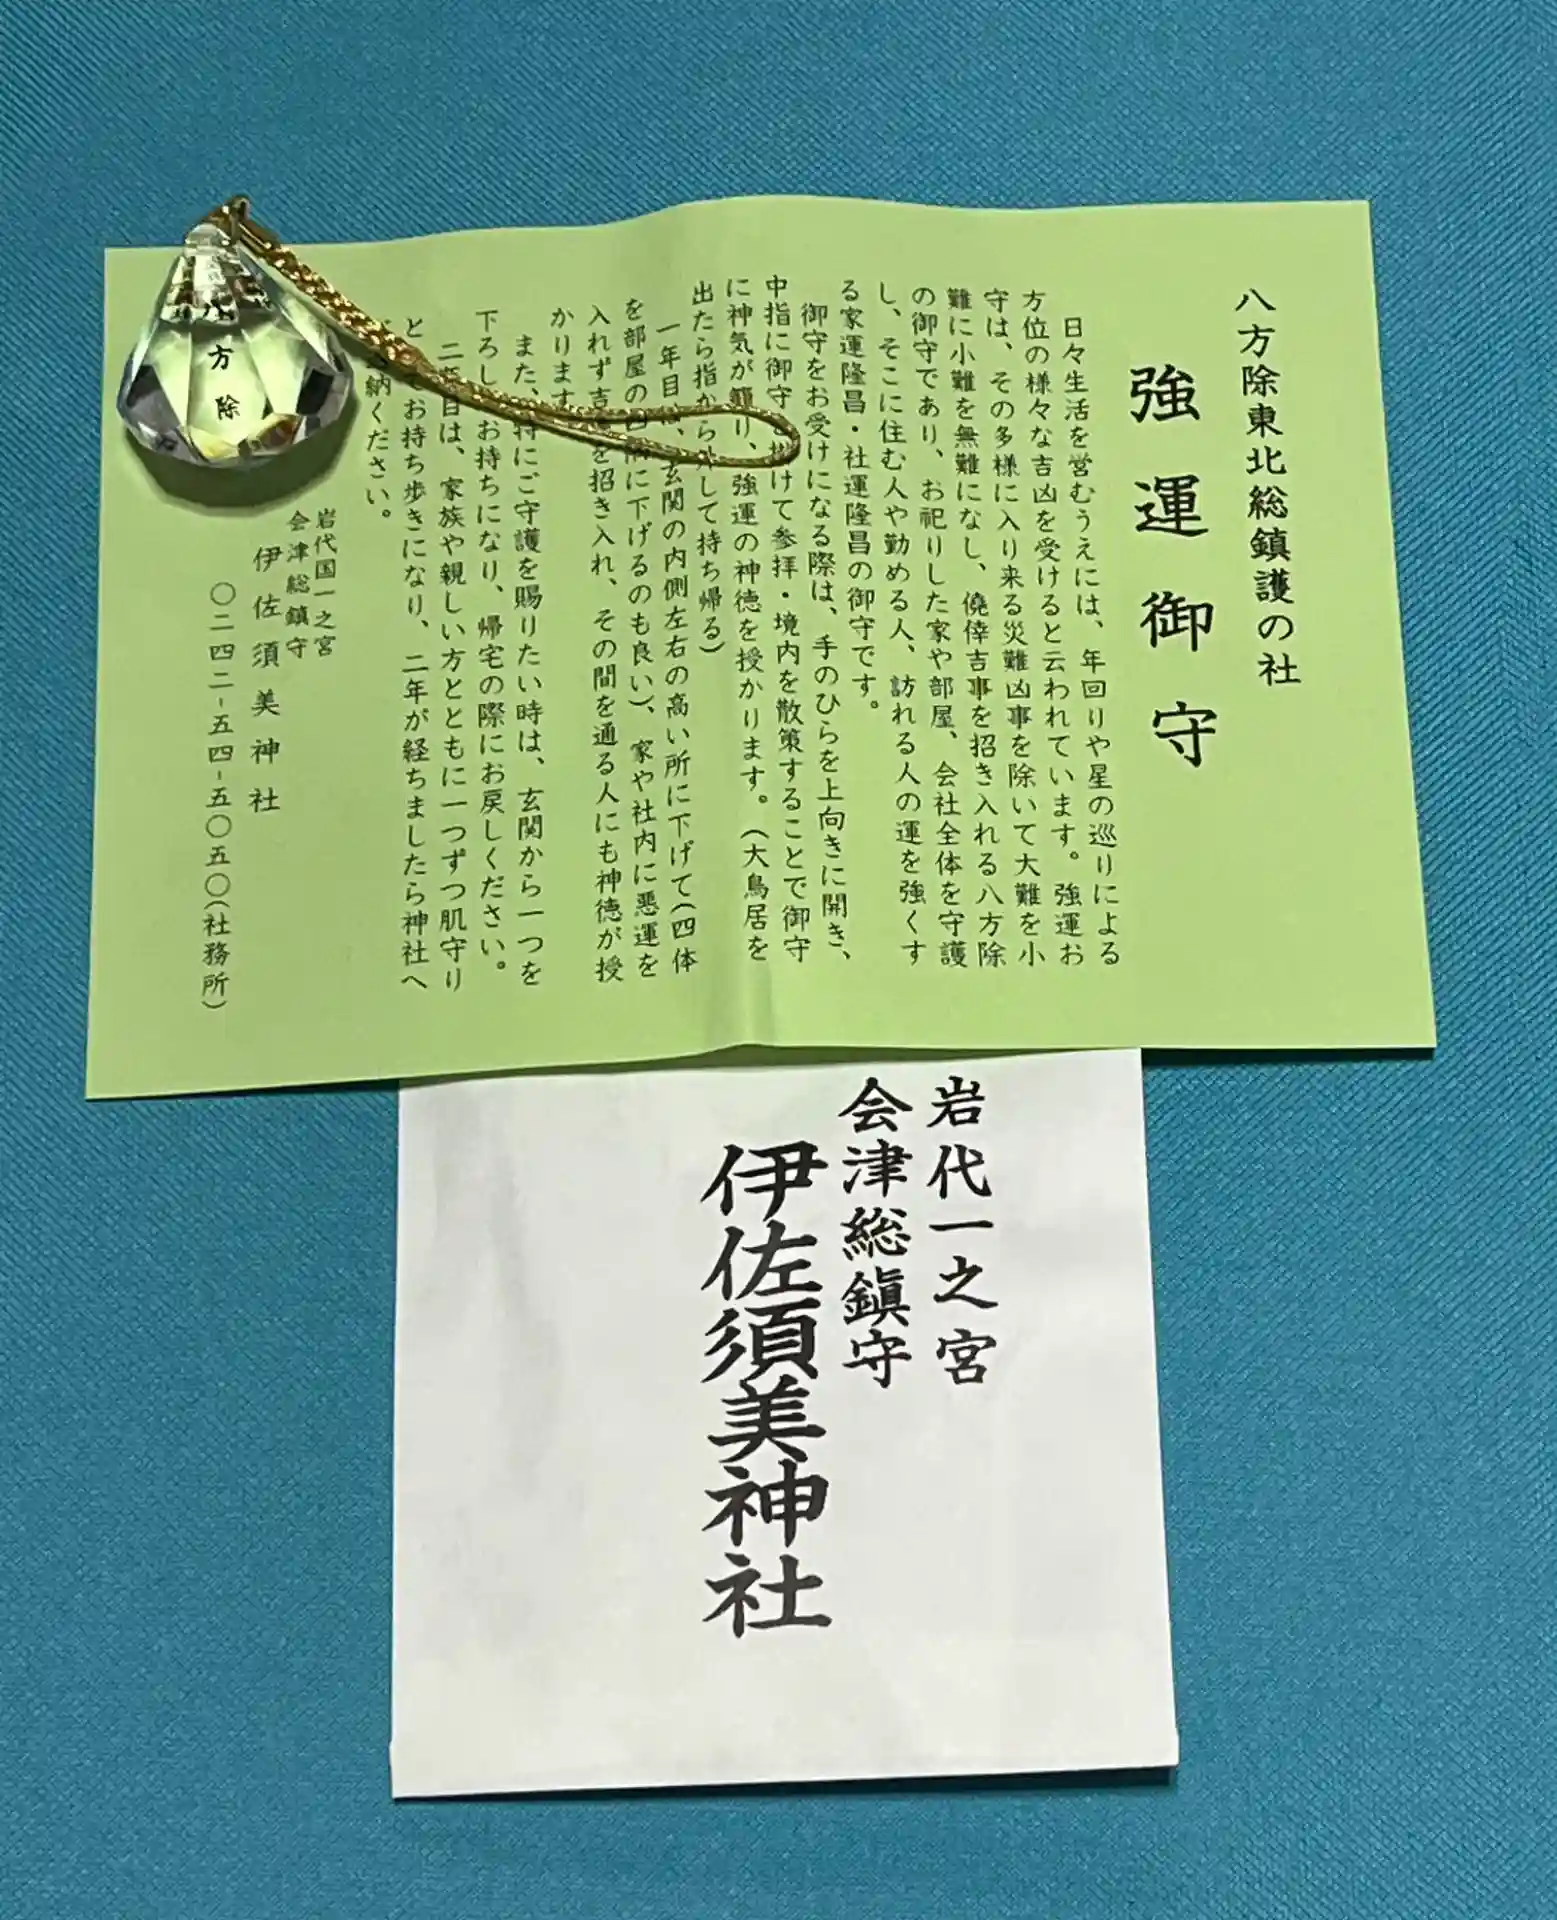 八方除東北総鎮護の社
強運御守
日々生活を営むうえには、年回りや星の巡りによる
方位の様々な吉凶を受けると云われています。強運お
守は、その多様に入り来る災難凶事を除いて大難を小
難に小難を無難になし、僥倖吉事を招き入れる八方除
の御守であり、お祀りした家や部屋、会社全体を守護
し、そこに住む人や勤める人、訪れる人の運を強くす
る家運隆昌・社運隆昌の御守です。
御守をお受けになる際は、手のひらを上向きに開き、
中指に御守を掛けて参拝・境内を散策することで御守
に神気が籠り、強運の神徳を授かります。（大鳥居を
出たら指から外して持ち帰る）
一年目は、玄関の内側左右の高い所に下げて（四体
を部屋の四隅に下げるのも良い）、家や社内に悪運を
入れず吉を招き入れ、その間を通る人にも神徳が授
かります
また、特にご守護を賜りたい時は、玄関から一つを
下ろしお持ちになり、帰宅の際にお戻しください。
二年目は、家族や親しい方とともに一つずつ肌守り
とお持ち歩きになり、二年が経ちましたら神社へ
納ください。
岩代国一之宮
会津総鎮守
伊佐須美神社
〇二四二-五四-五〇五〇（社務所）
方除
岩代一之宮
会津総鎭守
伊佐須美神社